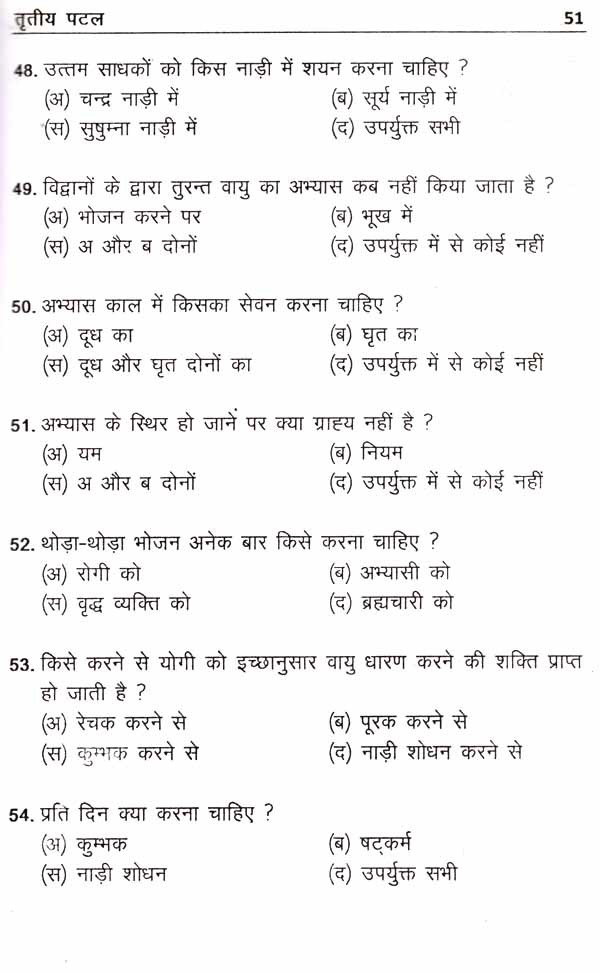 तृतीय पटल 51
48. उत्तम साधकों को किस नाड़ी में शयन करना चाहिए ?
(अ) चन्द्र नाड़ी में (ब) सूर्य नाड़ी में
(स) सुषुम्ना नाड़ी में (द) उपर्युक्त सभी
49. विद्वानों के द्वारा तुरन्त वायु का अभ्यास कब नहीं किया जाता है ?
(अ) भोजन करने पर (ब) भूख में
(स) अ और ब दोनों (द) उपर्युक्त में से कोई नहीं
50. अभ्यास काल में किसका सेवन करना चाहिए ?
(अ) दूध का (ब) घृत का
(स) दूध और घृत दोनों का (द) उपर्युक्त में से कोई नहीं
51. अभ्यास के स्थिर हो जानें पर क्या ग्राह्य नहीं है ?
(अ) यम (ब) नियम
(स) अ और ब दोनों (द) उपर्युक्त में से कोई नहीं
52. थोड़ा-थोड़ा भोजन अनेक बार किसे करना चाहिए ?
(अ) रोगी को (ब) अभ्यासी को
(स) वृद्ध व्यक्ति को (द) ब्रह्मचारी को
53. किसे करने से योगी को इच्छानुसार वायु धारण करने की शक्ति प्राप्त
हो जाती है ?
(अ) रेचक करने से (ब) पूरक करने से
(स) कुम्भक करने से (द) नाड़ी शोधन करने से
54. प्रति दिन क्या करना चाहिए ?
(अ) कुम्भक (ब) षट्कर्म
(स) नाड़ी शोधन (द) उपर्युक्त सभी